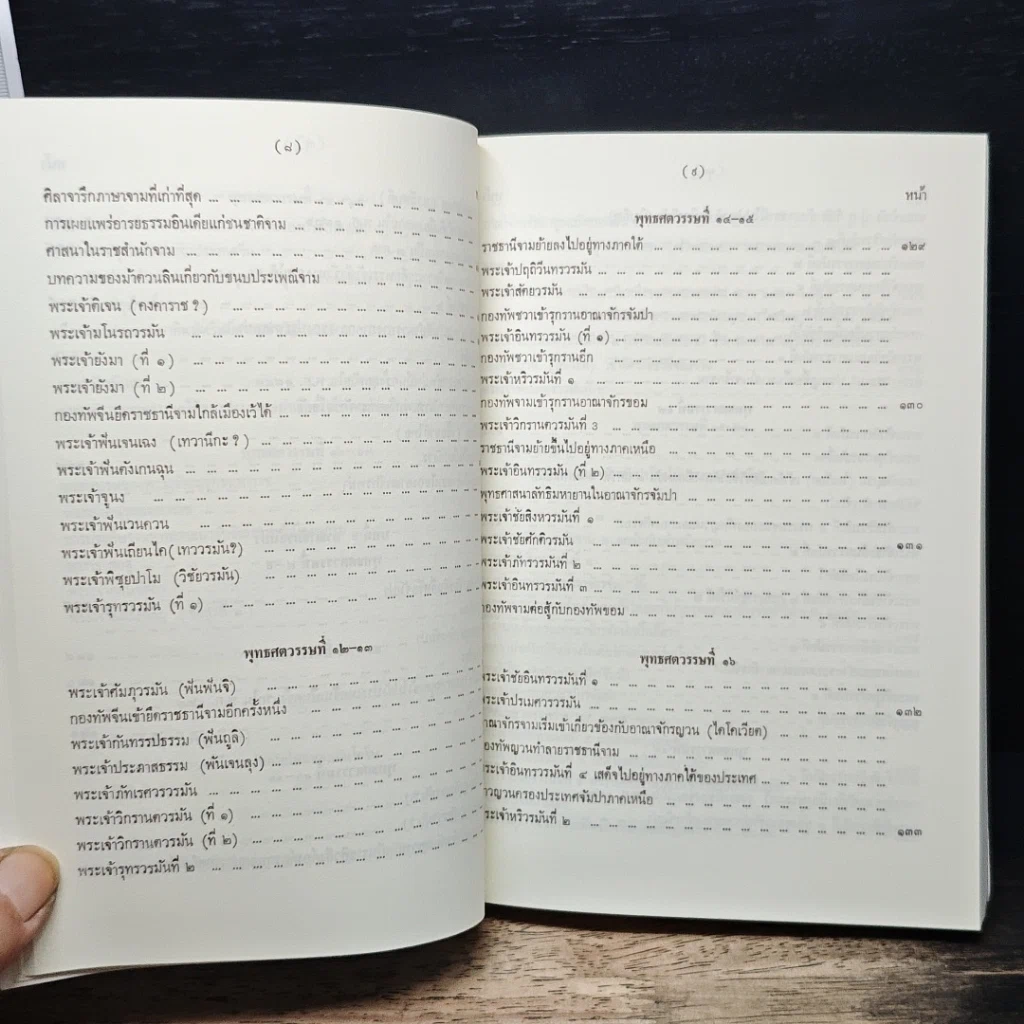 (๘)
ศิลาจารึกภาษาจามที่เก่าที่สุด ... ... ... ... ... ... ... ... ... ... ... ... ...
การเผยแพร่อารยธรรมอินเดียแก่ชนชาติจาม ... ... ... ... ... ... ... ... ...
ศาสนาในราชสำนักจาม ... ... ... ... ... ... ... ... ... ... ... ... ... ...
บทความของม้าตวนลินเกี่ยวกับขนบประเพณีจาม ... ... ... ... ... ... ... ...
พระเจ้าติเจน (คงคาราช ?) ... ... ... ... ... ... ... ... ... ... ... ...
พระเจ้ามโนรถวรมัน ... ... ... ... ... ... ... ... ... ... ... ... ... ...
พระเจ้ายังมา (ที่ ๑) ... ... ... ... ... ... ... ... ... ... ... ... ... ...
พระเจ้ายังมา (ที่ ๒) ... ... ... ... ... ... ... ... ... ... ... ... ... ...
กองทัพจีนยึดราชธานีจามใกล้เมืองเว้ได้ ... ... ... ... ... ... ... ... ... ...
พระเจ้าฟันเจนเฉง (เทวานีกะ ?) ... ... ... ... ... ... ... ... ... ... ...
พระเจ้าฟันดังเกนฉุน ... ... ... ... ... ... ... ... ... ... ... ... ... ...
พระเจ้าจูนง ... ... ... ... ... ... ... ... ... ... ... ... ... ... ... ...
พระเจ้าฟันเวนควน ... ... ... ... ... ... ... ... ... ... ... ... ... ...
พระเจ้าฟันเถียนไค (เทววรมัน?) ... ... ... ... ... ... ... ... ... ... ...
พระเจ้าพิซุยปาโม (วิชัยวรมัน) ... ... ... ... ... ... ... ... ... ... ...
พระเจ้ารุทรวรมัน (ที่ ๑) ... ... ... ... ... ... ... ... ... ... ... ... ...
พุทธศตวรรษที่ ๑๒-๑๓
พระเจ้าศัมภุวรมัน (ฟันฟันจิ) ... ... ... ... ... ... ... ... ... ... ...
กองทัพจีนเข้ายึดราชธานีจามอีกครั้งหนึ่ง ... ... ... ... ... ... ... ... ...
พระเจ้ากันทรรปธรรม (ฟันถูลิ) ... ... ... ... ... ... ... ... ... ... ...
พระเจ้าประภาสธรรม (ฟันเจนลุง) ... ... ... ... ... ... ... ... ... ...
พระเจ้าภัทเรศวรวรมัน ... ... ... ... ... ... ... ... ... ... ... ... ...
พระเจ้าวิกรานตวรมัน (ที่ ๑) ... ... ... ... ... ... ... ... ... ... ... ...
พระเจ้าวิกรานตวรมัน (ที่ ๒) ... ... ... ... ... ... ... ... ... ... ... ...
พระเจ้ารุทรวรมันที่ ๒ ... ... ... ... ... ... ... ... ... ... ... ... ...
(๙)
หน้า
พุทธศตวรรษที่ ๑๔-๑๕
ราชธานีจามย้ายลงไปอยู่ทางภาคใต้ ... ... ... ... ... ... ... ... ... ... ... ๑๒๙
พระเจ้าปฤถิวีนทรวรมัน ... ... ... ... ... ... ... ... ... ... ... ... ...
พระเจ้าสัตยวรมัน ... ... ... ... ... ... ... ... ... ... ... ... ... ...
กองทัพชวาเข้ารุกรานอาณาจักรจัมปา ... ... ... ... ... ... ... ... ... ...
พระเจ้าอินทรวรมัน (ที่ ๑) ... ... ... ... ... ... ... ... ... ... ... ...
กองทัพชวาเข้ารุกรานอีก ... ... ... ... ... ... ... ... ... ... ... ...
พระเจ้าหริวรมันที่ ๑ ... ... ... ... ... ... ... ... ... ... ... ... ...
กองทัพจามเข้ารุกรานอาณาจักรขอม ... ... ... ... ... ... ... ... ... ... ๑๓๐
พระเจ้าวิกรานตวรมันที่ 3 ... ... ... ... ... ... ... ... ... ... ... ...
ราชธานีจามย้ายขึ้นไปอยู่ทางภาคเหนือ ... ... ... ... ... ... ... ... ... ...
พระเจ้าอินทรวรมัน (ที่ ๒) ... ... ... ... ... ... ... ... ... ... ... ...
พุทธศาสนาลัทธิมหายานในอาณาจักรจัมปา ... ... ... ... ... ... ... ... ...
พระเจ้าชัยสิงหวรมันที่ ๑ ... ... ... ... ... ... ... ... ... ... ... ...
พระเจ้าชัยศักติวรมัน ... ... ... ... ... ... ... ... ... ... ... ... ... ๑๓๑
พระเจ้าภัทรวรมันที่ ๒ ... ... ... ... ... ... ... ... ... ... ... ... ...
พระเจ้าอินทรวรมันที่ ๓ ... ... ... ... ... ... ... ... ... ... ... ... ...
กองทัพจามต่อสู้กับกองทัพขอม ... ... ... ... ... ... ... ... ... ... ...
พุทธศตวรรษที่ ๑๖
พระเจ้าชัยอินทรวรมันที่ ๑ ... ... ... ... ... ... ... ... ... ... ... ...
พระเจ้าปรเมศวรวรมัน ... ... ... ... ... ... ... ... ... ... ... ... ... ๑๓๒
อาณาจักรจามเริ่มเข้าเกี่ยวข้องกับอาณาจักรญวน (ไดโคเวียต) ... ... ... ... ...
กองทัพญวนทำลายราชธานีจาม ... ... ... ... ... ... ... ... ... ... ...
พระเจ้าอินทรวรมันที่ ๔ เสด็จไปอยู่ทางภาคใต้ของประเทศ ... ... ... ... ... ...
ชาวญวนครองประเทศจัมปาภาคเหนือ ... ... ... ... ... ... ... ... ... ...
พระเจ้าหริวรมันที่ ๒ ... ... ... ... ... ... ... ... ... ... ... ... ... ๑๓๓